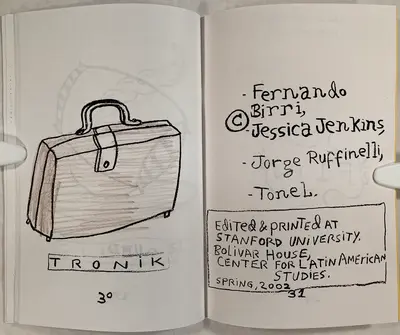 TRONIK
30
- Fernando
© Birri,
- Jessica Jenkins,
- Jorge Ruffinelli,
- Tonel.
Edited & printed at
Stanford University.
Bolívar House,
Center for Latin American
Studies.
Spring, 2002
31